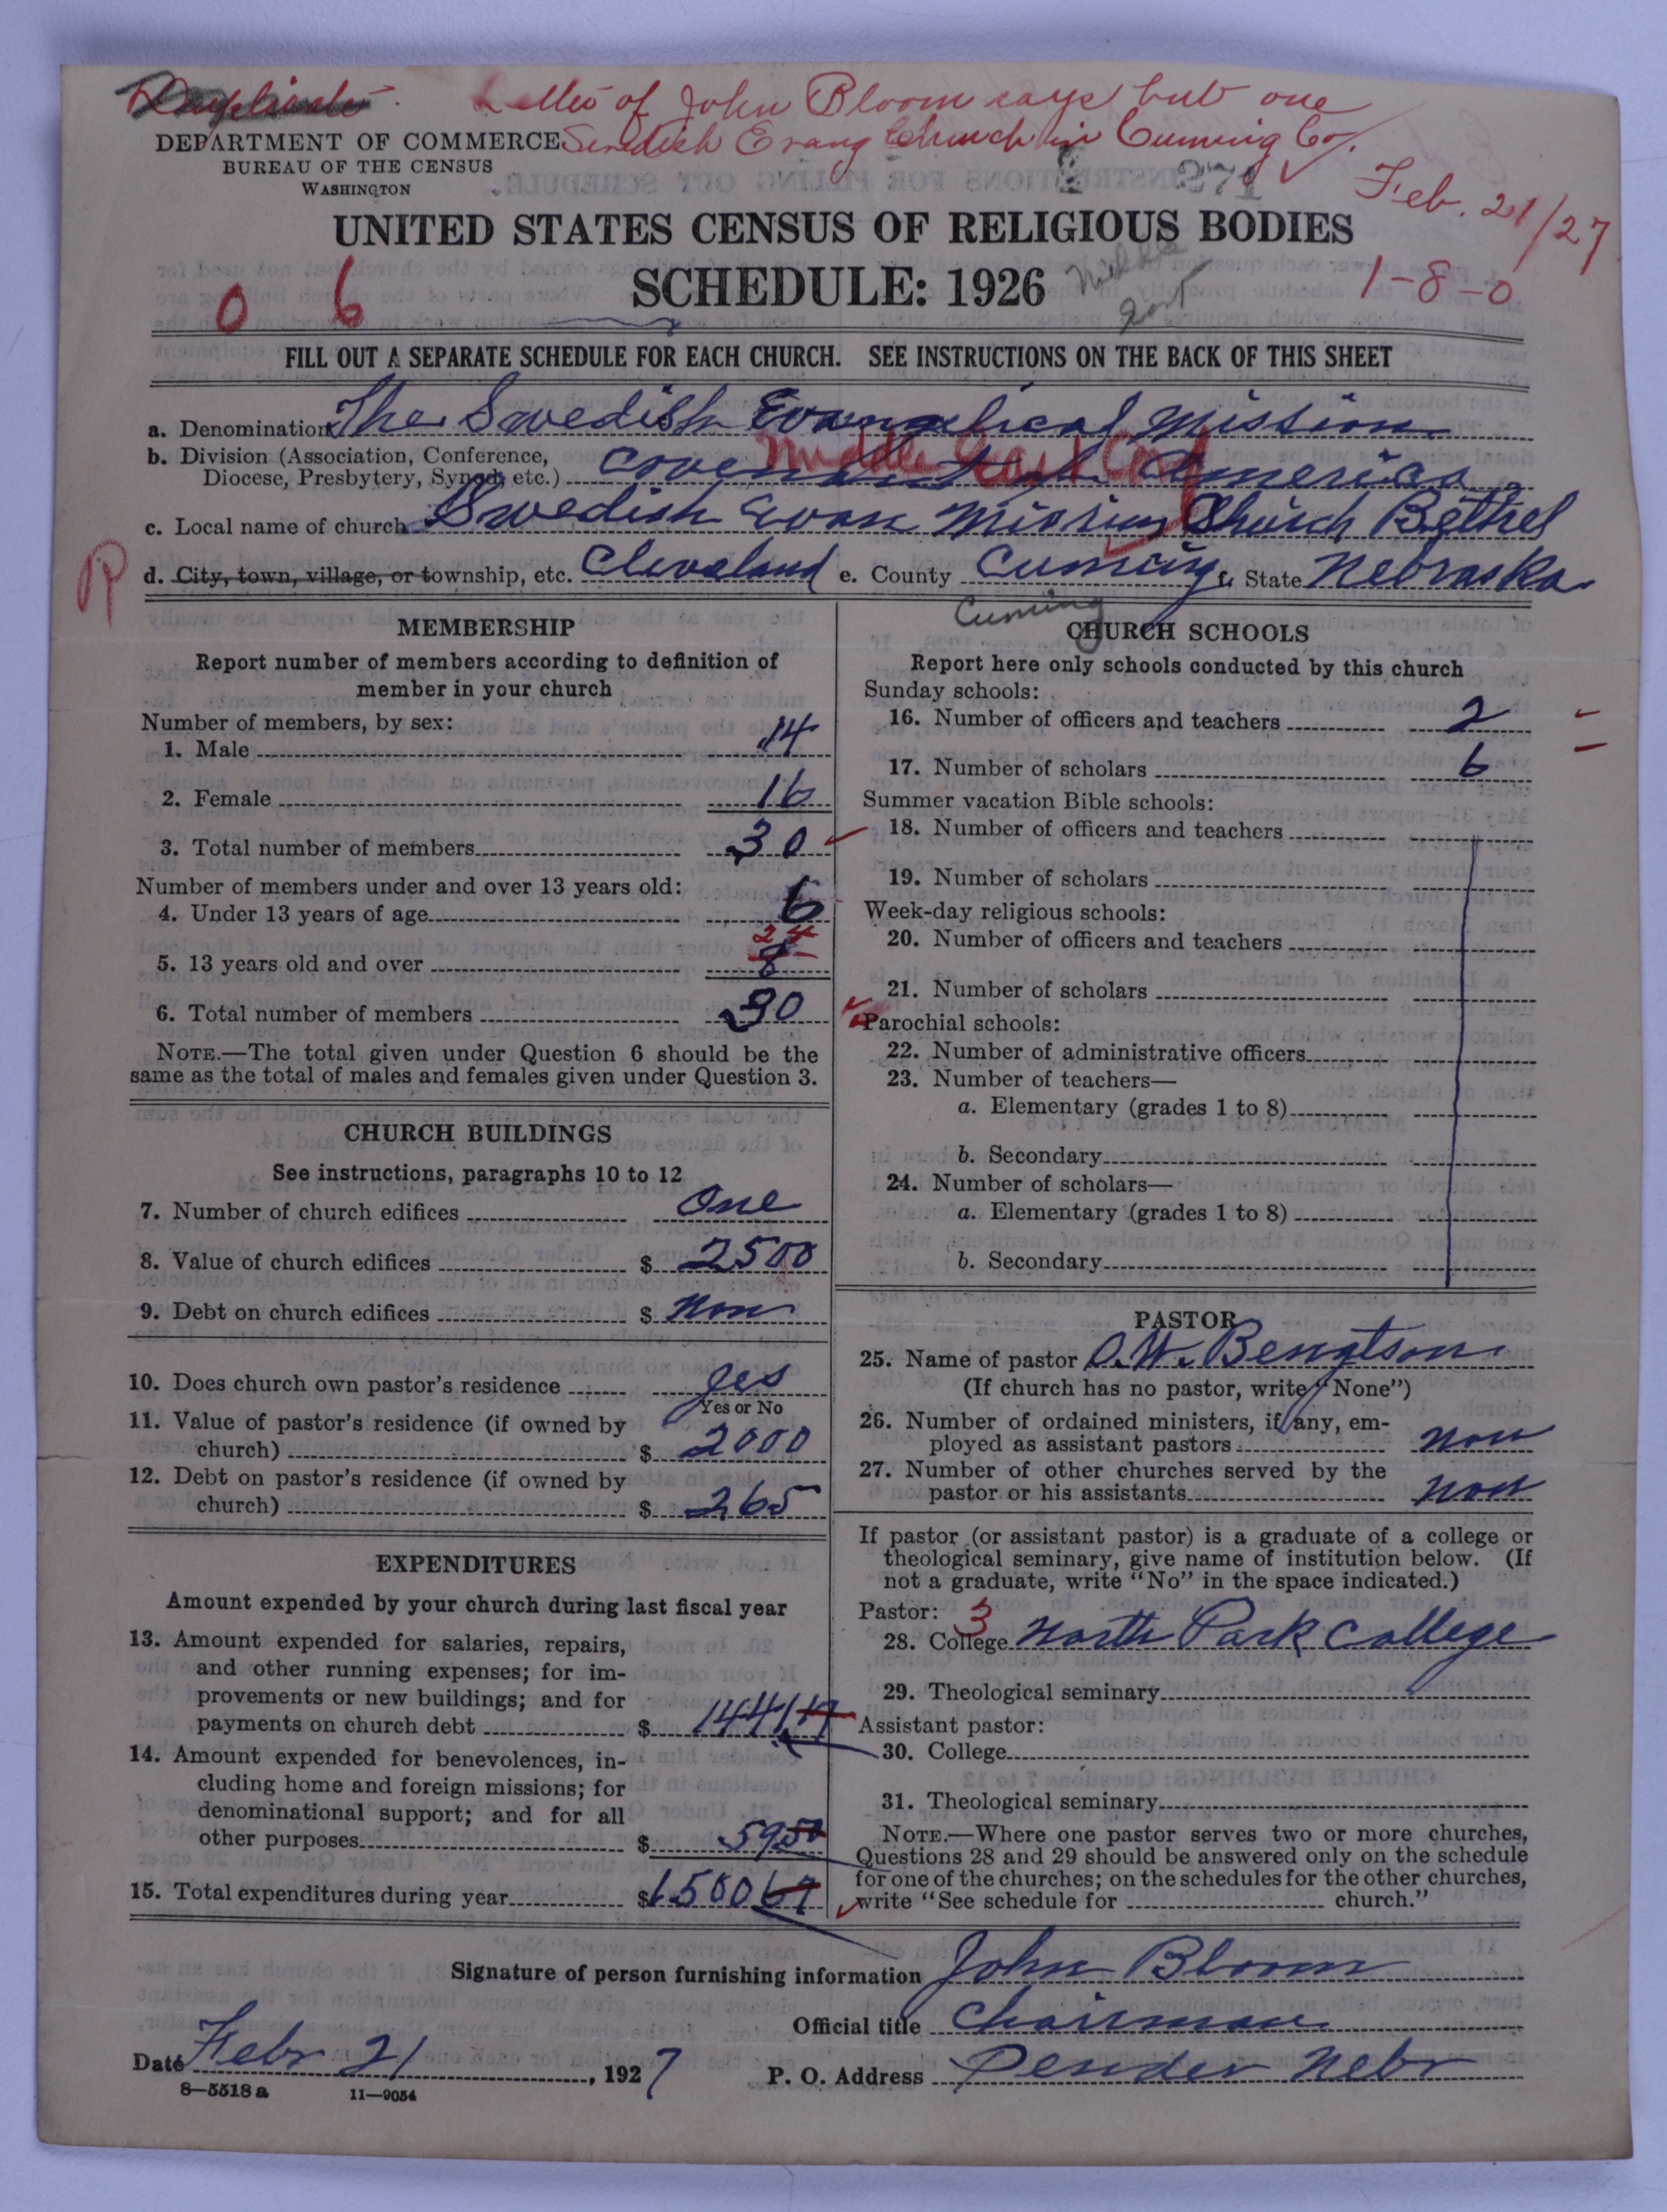 Duplicate. Letter of John Bloom says but one
DEPARTMENT OF COMMERCE Swedish Evang Church in Cuming Co.
BUREAU OF THE CENSUS
WASHINGTON
Feb. 21/27
UNITED STATES CENSUS OF RELIGIOUS BODIES
SCHEDULE: 1926
1-8-0
0 6
FILL OUT A SEPARATE SCHEDULE FOR EACH CHURCH. SEE INSTRUCTIONS ON THE BACK OF THIS SHEET
a. Denomination The Swedish Evangelical Mission
b. Division (Association, Conference, Diocese, Presbytery, Synod, etc.) Covenant of America
Middle East Conf
c. Local name of church Swedish Evan Mission Church Bethel
R
d. City, town, village, or township, etc. Cleveland e. County Cuming f. State Nebraska
Cuming
MEMBERSHIP
Report number of members according to definition of
member in your church
Number of members, by sex:
1. Male 14
2. Female 16
3. Total number of members 30
Number of members under and over 13 years old:
4. Under 13 years of age 6
5. 13 years old and over 8 24
6. Total number of members 30
NOTE.—The total given under Question 6 should be the
same as the total of males and females given under Question 3.
CHURCH BUILDINGS
See instructions, paragraphs 10 to 12
7. Number of church edifices One
8. Value of church edifices $ 2500
9. Debt on church edifices $ Non
10. Does church own pastor's residence yes
Yes or No
11. Value of pastor's residence (if owned by
church) $ 2000
12. Debt on pastor's residence (if owned by
church) $ 265
EXPENDITURES
Amount expended by your church during last fiscal year
13. Amount expended for salaries, repairs,
and other running expenses; for im-
provements or new buildings; and for
payments on church debt $ 1441 17
14. Amount expended for benevolences, in-
cluding home and foreign missions; for
denominational support; and for all
other purposes $ 59 50
15. Total expenditures during year $ 1500 67
CHURCH SCHOOLS
Report here only schools conducted by this church
Sunday schools:
16. Number of officers and teachers 2
17. Number of scholars 6
Summer vacation Bible schools:
18. Number of officers and teachers
19. Number of scholars
Week-day religious schools:
20. Number of officers and teachers
21. Number of scholars
Parochial schools:
22. Number of administrative officers
23. Number of teachers—
a. Elementary (grades 1 to 8)
b. Secondary
24. Number of scholars—
a. Elementary (grades 1 to 8)
b. Secondary
PASTOR
25. Name of pastor O. W. Bengtson
(If church has no pastor, write "None")
26. Number of ordained ministers, if any, em-
ployed as assistant pastors Non
27. Number of other churches served by the
pastor or his assistants Non
If pastor (or assistant pastor) is a graduate of a college or
theological seminary, give name of institution below. (If
not a graduate, write "No" in the space indicated.)
Pastor: 3
28. College North Park College
29. Theological seminary
Assistant pastor:
30. College
31. Theological seminary
NOTE.—Where one pastor serves two or more churches,
Questions 28 and 29 should be answered only on the schedule
for one of the churches; on the schedules for the other churches,
write "See schedule for church."
Signature of person furnishing information John Bloom
Official title Chairman
Date Febr 21, 1927
P. O. Address Pender Nebr
8—5518 a 11—9054